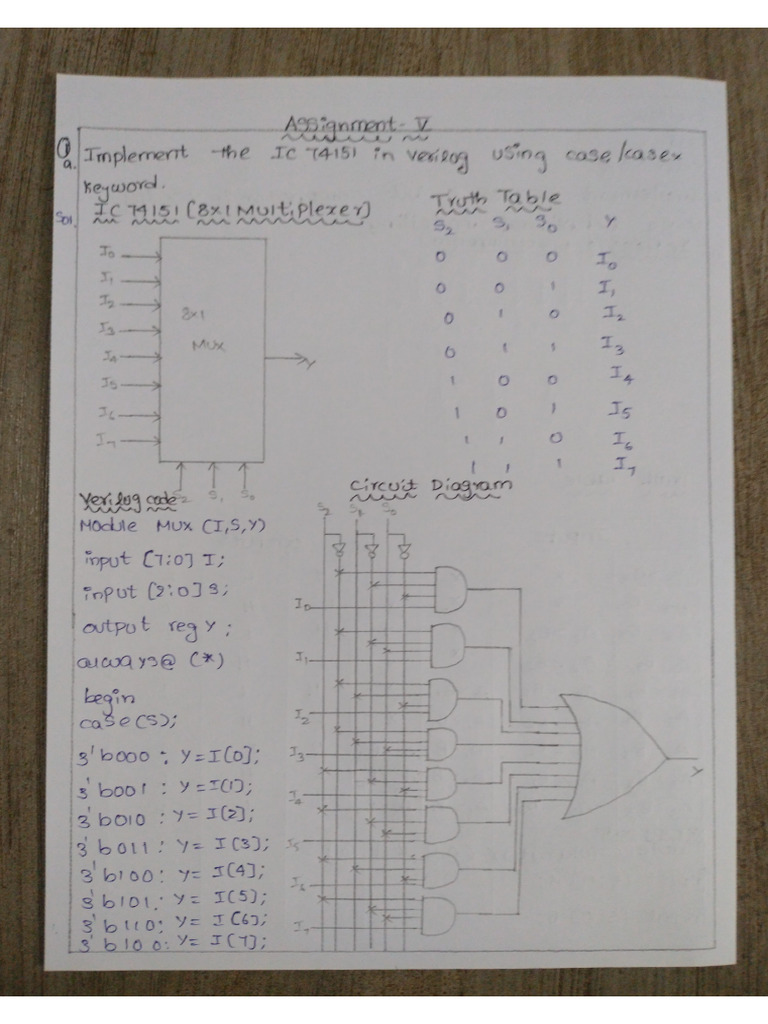 Assignment - V
Q a. Implement the IC 74151 in verilog using case/casex
keyword.
Sol. IC 74151 (8x1 Multiplexer)
I0
I1
I2
I3
I4
I5
I6
I7
8x1
MUX
Y
S2 S1 S0
Truth Table
S2 S1 S0 Y
0 0 0 I0
0 0 1 I1
0 1 0 I2
0 1 1 I3
1 0 0 I4
1 0 1 I5
1 1 0 I6
1 1 1 I7
Verilog code
Module MUX (I,S,Y)
input [7:0] I;
input [2:0] S;
output reg Y;
always@ (*)
begin
case(S);
3'b000: Y=I[0];
3'b001: Y=I(1);
3'b010: Y=I[2];
3'b011: Y=I(3];
3'b100: Y=I[4];
3'b101: Y=I(5];
3'b110: Y=I(6];
3'b100: Y=I(7];
Circuit Diagram
S2 S1 S0
I0
I1
I2
I3
I4
I5
I6
I7
Y